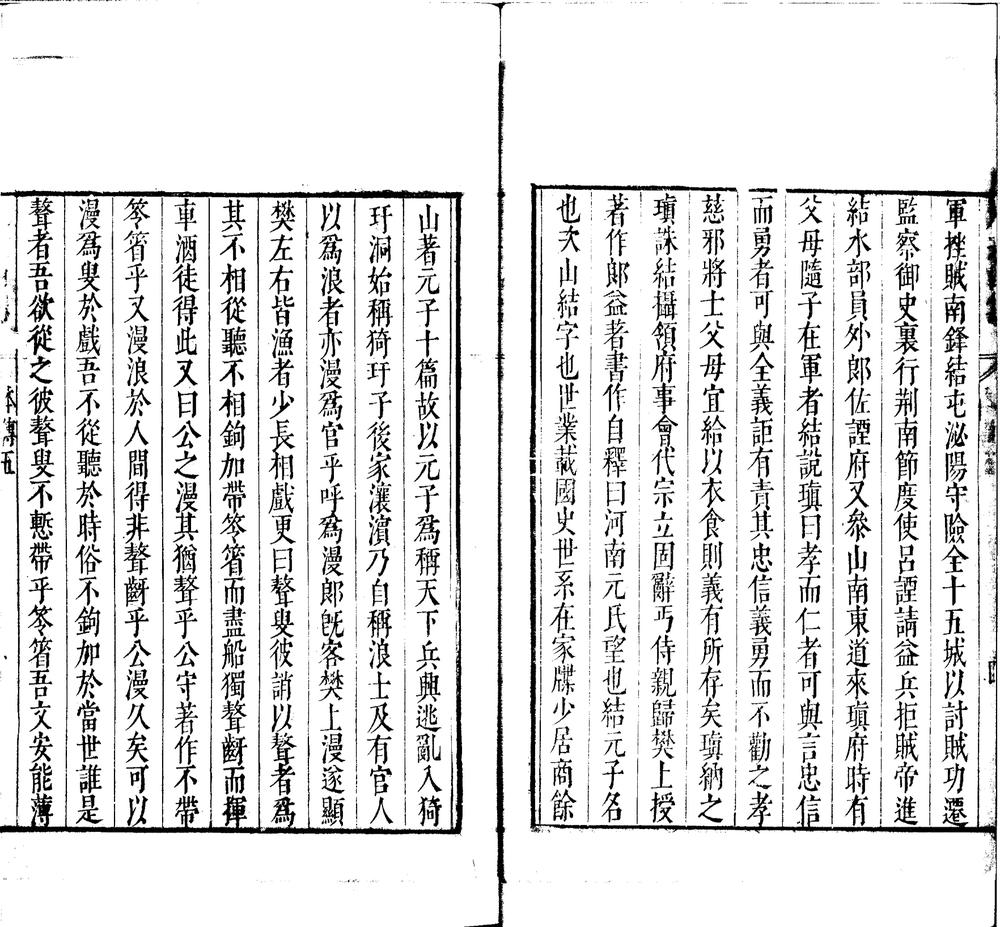 軍挫賊南鋒結屯泌陽守險全十五城以討賊功遷
監察御史裏行荆南節度使呂諲請益兵拒賊帝進
結水部員外郎佐諲府又叅山南東道來瑱府時有
父母隨子在軍者結說瑱曰孝而仁者可與言忠信
而勇者可與全義詎有責其忠信義勇而不勸之孝
慈邪將士父母宜給以衣食則義有所存矣瑱納之
瑱誅結攝領府事會代宗立固辭丐侍親歸樊上授
著作郞益著書作自釋曰河南元氏望也結元子名
也次山結字也世業載國史世系在家牒少居商餘
山著元子十篇故以元子爲稱天下兵興逃亂入猗
玗洞始稱猗玗子後家瀼濵乃自稱浪士及有官人
以爲浪者亦漫爲官乎呼爲漫郞旣客樊上漫遂顯
樊左右皆漁者少長相戲更曰聱叟彼誚以聱者爲
其不相從聽不相鉤加帶笭箵而盡船獨聱齖而揮
車酒徒得此又曰公之漫其猶聱乎公守著作不帶
笭箵乎又漫浪於人間得非聱齖乎公漫久矣可以
漫爲叟於戲吾不從聽於時俗不鉤加於當世誰是
聱者吾欲從之彼聱叟不慙帶乎笭箵吾又安能薄
本傳五